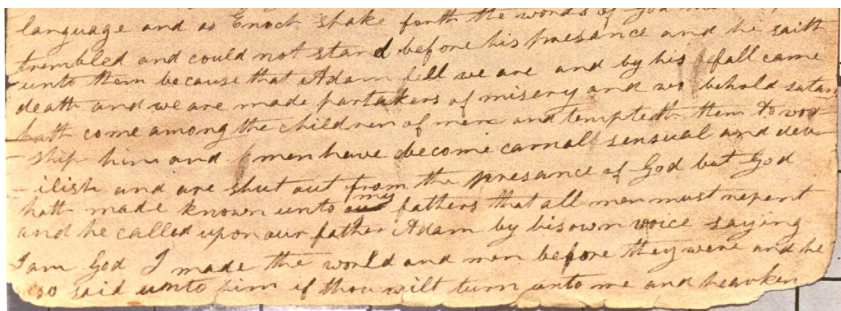 language and as Enoch spake forth the words of God the
trembled and could not stand before his presance and he saith
unto them because that Adam fell we are and by his fall came
death and we are made partakers of misery and wo behold satan
hath come among the children of men and tempteth them to wor
- ship him and men have become carnall sensual and dev
- ilish and are shut out from the presance of God but God
hath made known unto my fathers that all men must repent
and he called upon our father Adam by his own voice saying
I am God I made the world and men before they were and he
also said unto him if thou wilt turn unto me and hearken